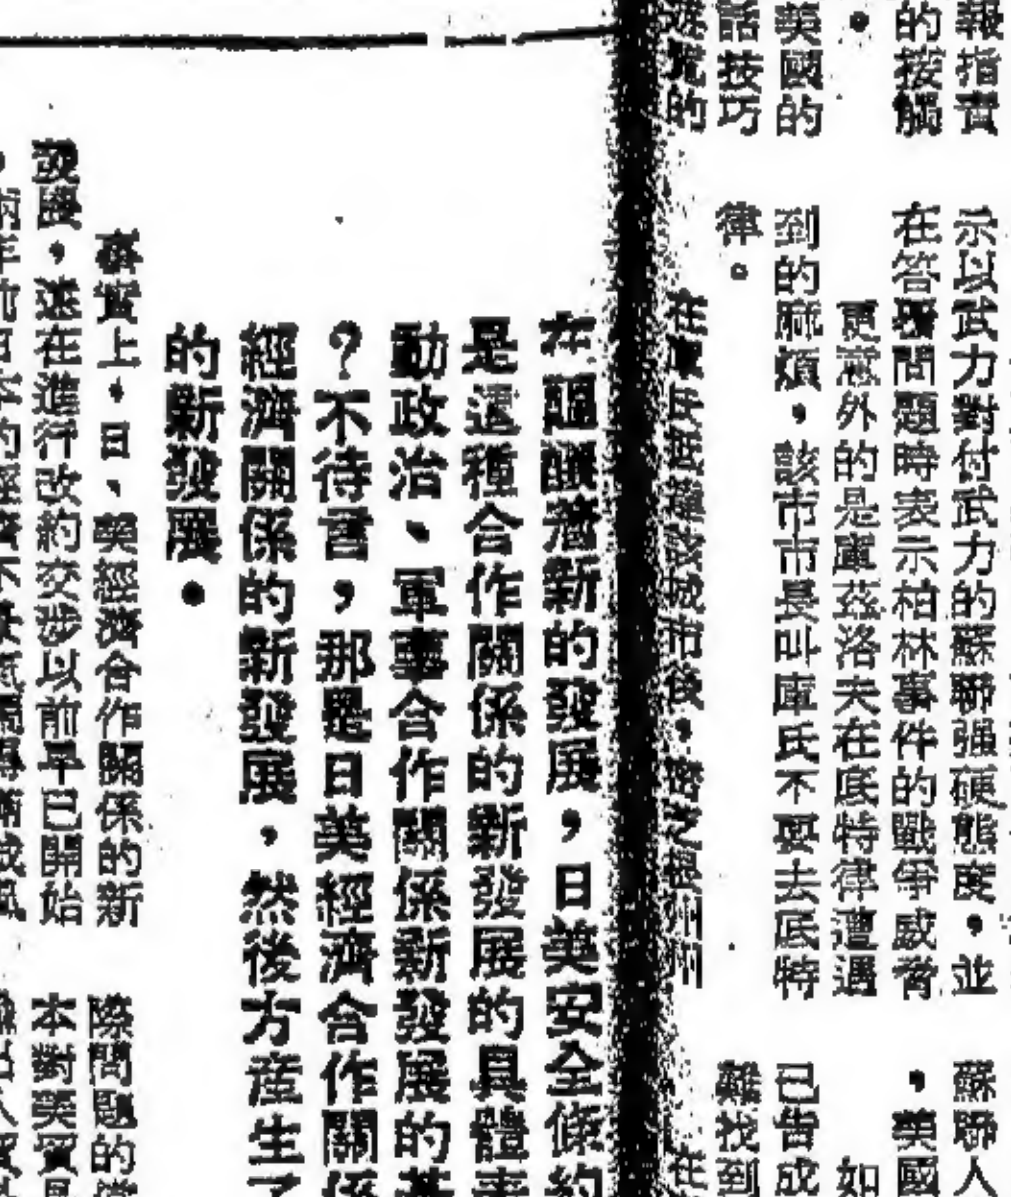 報指責
的接觸
。
美國的
話技巧
的
示以武力對付武力的蘇聯强硬態度。並
在答覆問題時表示柏林事件的戰爭威脅
更意外的是庫茲洛夫在底特律遭遇
到的麻煩，該市市長叫庫氏不要去底特
律。
在 氏抵達該城市後，密芝根州州
蘇聯人
，美國
如
已告成
難找到
在
在醞釀着新的發展，日美安全條約
是這種合作關係的新發展的具體表
動政治、軍事合作關係新發展的基
？不待言，那是日美經濟合作關係
經濟關係的新發展，然後方產生了
的新發展。
事實上，日、美經濟合作關係的新
發展，遠在進行改約交涉以前早已開始
，兩年前日本的經濟不景氣
際問題的
本對美貿易